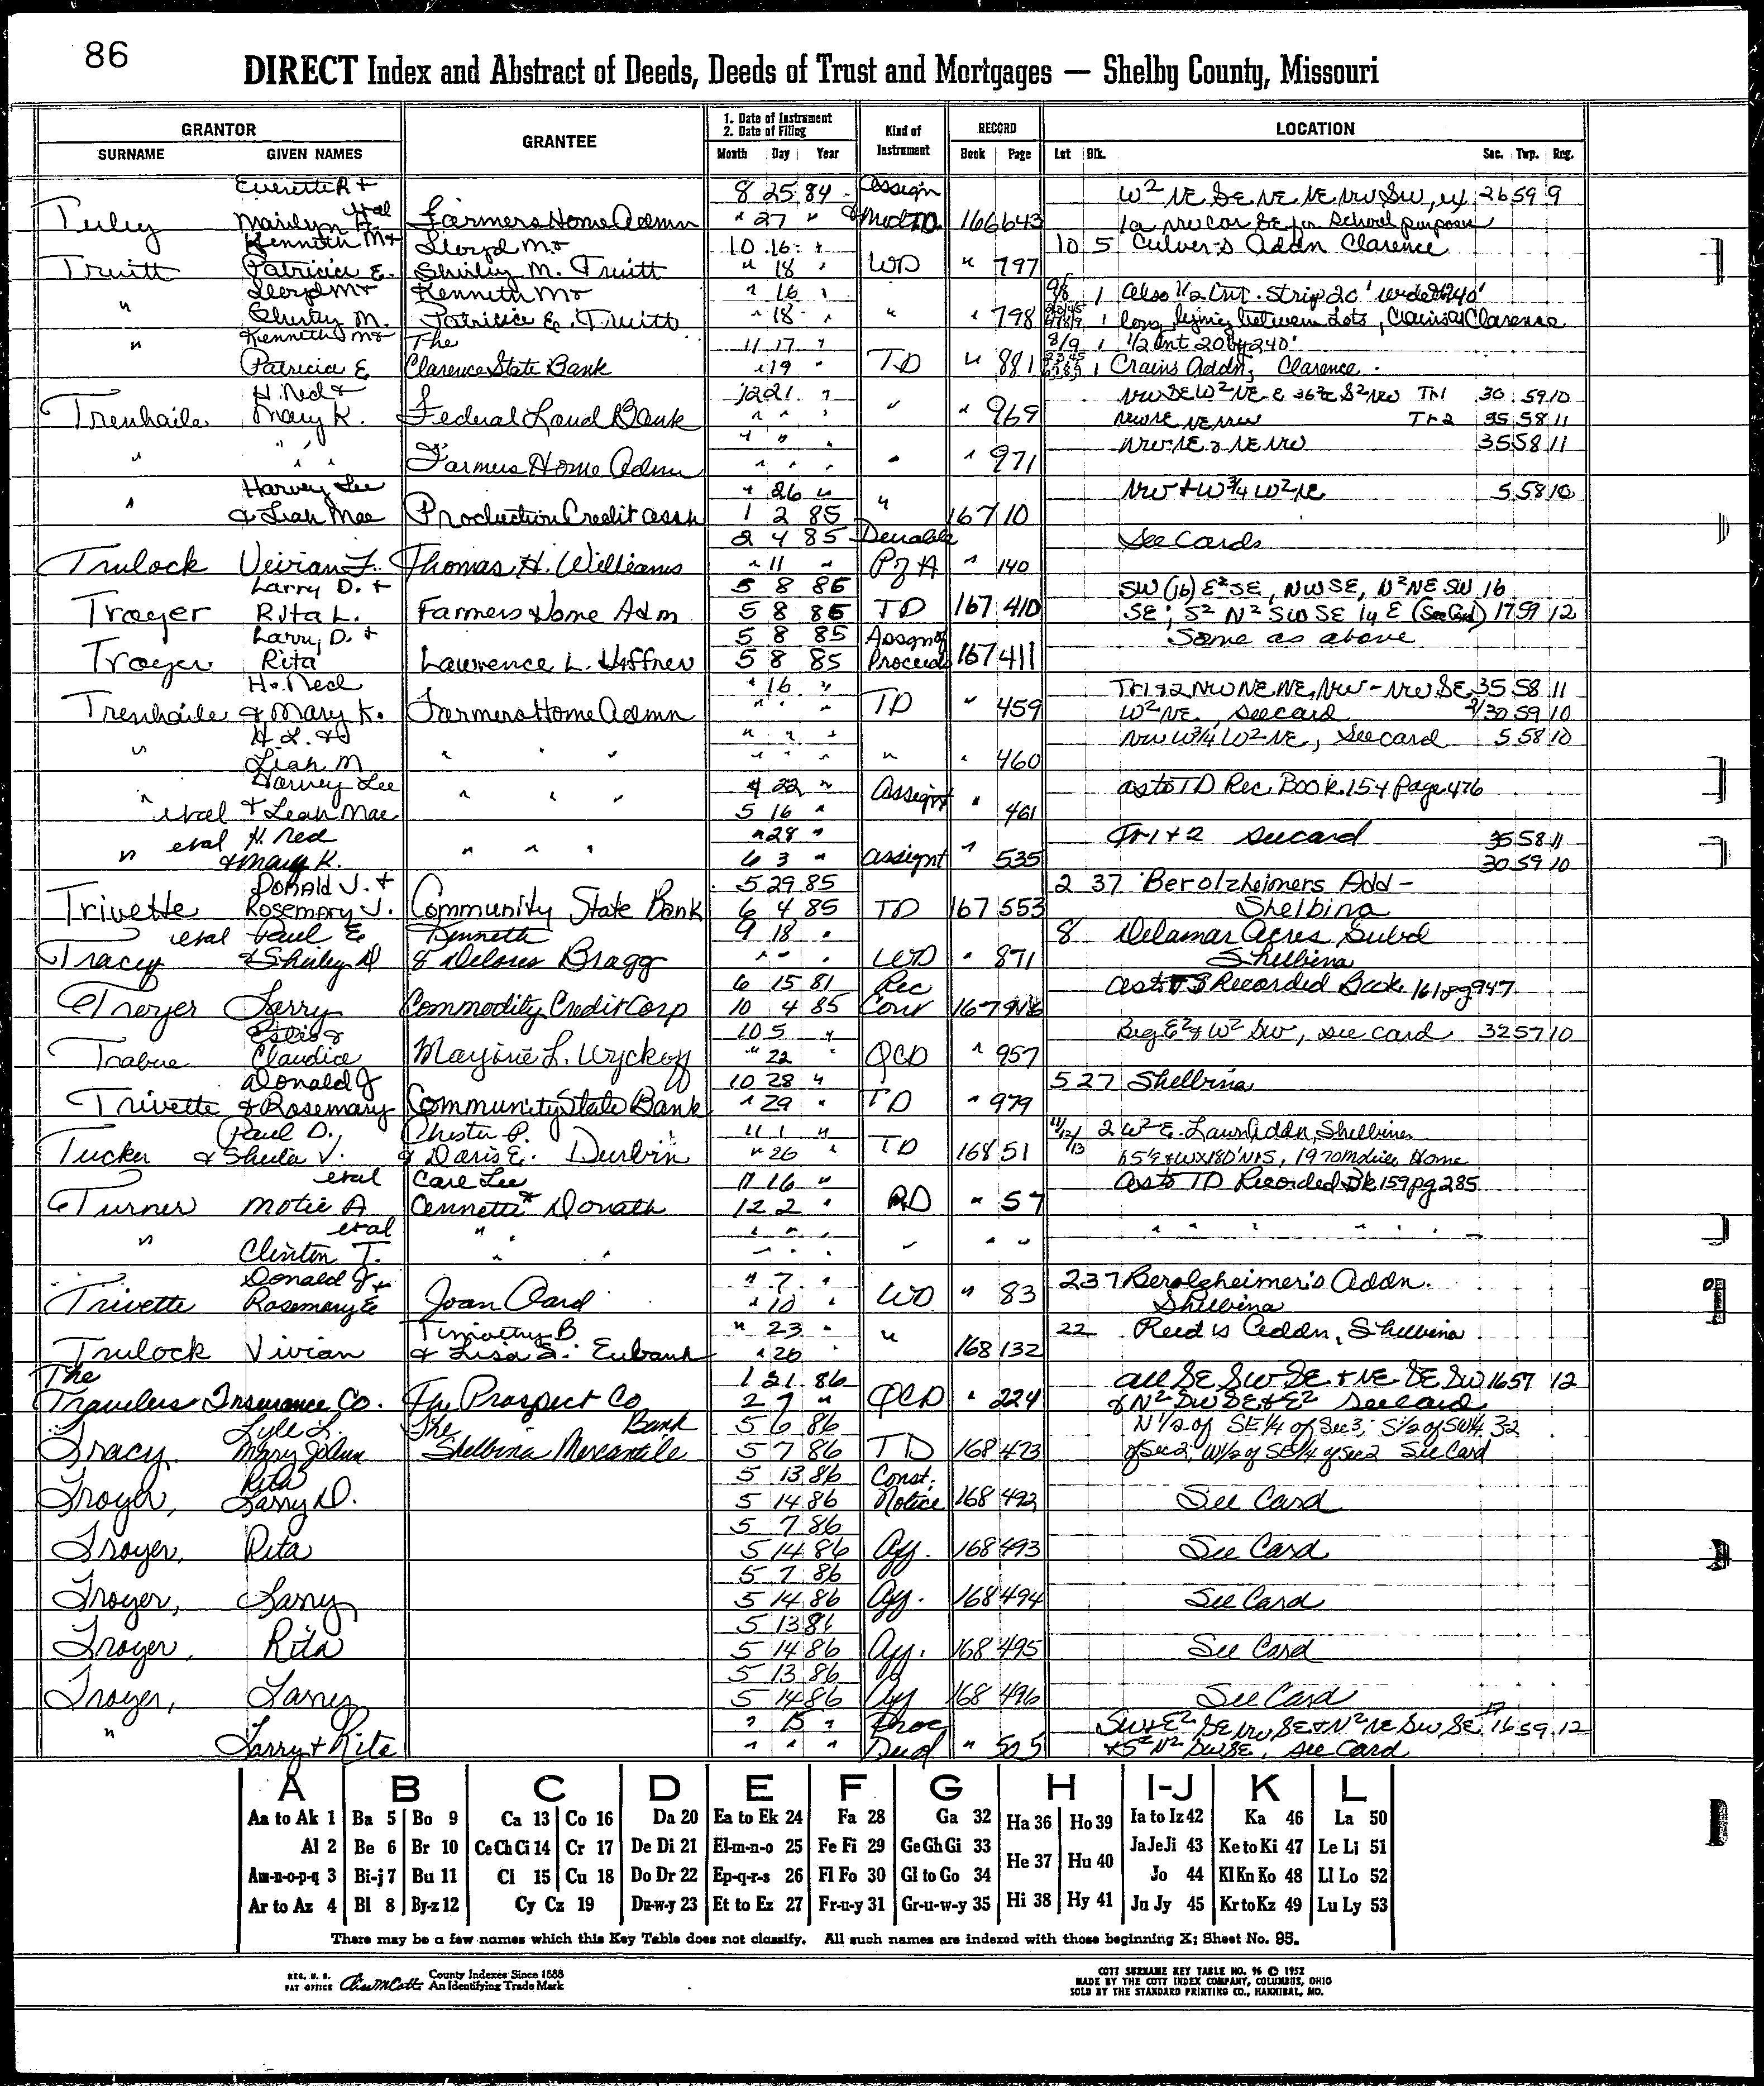 86
DIRECT Index and Abstract of Deeds, Deeds of Trust and Mortgages — Shelby County, Missouri
GRANTOR GRANTEE 1. Date of Instrument 2. Date of Filing Kind of Instrument RECORD LOCATION
SURNAME GIVEN NAMES Month Day Year Book Page Lot Blk. Sec. Twp. Rng.
Everette R + 8 25 84 Assign W² NE SE NE NE NW SW, ex 26 59 9
Tuley Marilyn A. etal Farmers Home Admn " 27 " & Mod TD 166 643 1a NW cor SE for School purpose
Kenneth M + Lloyd M + 10 16 " 10 5 Culver's Addn Clarence
Truitt Patricia E. Shirley M. Truitt " 18 " WD " 797
Lloyd M + Kenneth M + " 16 " 9/8 1 Also 1/2 Int. Strip 20' wide 240'
" Shirley M. Patricia E. Truitt " 18 " " " 798 1 long lying between Lots, Crains Clarence
" Kenneth M + The 11 17 " 8/9 1 1/2 Int 20 by 240'
Patricia E Clarence State Bank " 19 " TD " 881 1 Crains Addn, Clarence.
H. Ned + 12 21 " NW SE W² NE E 36 2/3 S² NW Tr 1 30 59 10
Trenhaile Mary K. Federal Land Bank " " " " " 969 NW NE NE NW Tr 2 35 58 11
" " " " NW NE & NE NW 35 58 11
" " " Farmers Home Admn " " " " " 971
Harvey Lee " 26 " NW + W 3/4 W² NE 5 58 10
" & Leah Mae Production Credit Assn 1 2 85 " 167 10
2 4 85 Durable See Cards
Trulock Vivian F. Thomas H. Williams " 11 " P of A " 140
Larry D. + 5 8 85 SW (16) E² SE, NW SE, N² NE SW 16
Troyer Rita L. Farmers Home Adm 5 8 85 TD 167 410 SE; S² N² SW SE ly E (See Card) 17 59 12
Larry D. + 5 8 85 Assgn of Same as above
Troyer Rita Lawrence L. Haffner 5 8 85 Proceeds 167 411
H. Ned " 16 " Tr 1 & 2 NW NE NE, NW - NW SE, 35 58 11
Trenhaile & Mary K. Farmers Home Admn " " " TD " 459 W² NE, see card 30 59 10
H. L. & " " " NW W 3/4 W² NE, See card 5 58 10
" Leah M " " " " " " " " 460
Harvey Lee 4 22 " as to TD Rec. Book 154 Page 476
" etal & Leah Mae " " " 5 16 " Assignt " 461
etal H. Ned " 28 " Tr 1 + 2 see card 35 58 11
" & Mary K. " " " 6 3 " Assignt " 535 30 59 10
Donald J. + 5 29 85 2 37 Berolzheimers Add -
Trivette Rosemary J. Community State Bank 6 4 85 TD 167 553 Shelbina
etal Paul E Kenneth 9 18 " 8 Delamar Acres Subd
Tracy & Shirley D & Delores Bragg " " " WD " 871 Shelbina
6 15 81 Rec as to FS Recorded Book 161 pg 947
Troyer Larry Commodity Credit Corp 10 4 85 Conv 167
Estis & 10 5 " Beg E² & W² SW, see card 32 57 10
Trabue Claudia Marjorie L. Wyckoff " 22 " QCD " 957
Donald J 10 28 " 5 27 Shelbina
Trivette & Rosemary Community State Bank " 29 " TD " 979
Paul D. Chester P. 11 1 " 11/12/13 2 W² E. Lawn Addn, Shelbina
Tucker & Sheila J. & Doris E. Durbin " 26 " TD 168 51 65' E & W X 180' N & S, 1970 Mobile Home
etal Carl Lee 11 16 " as to TD Recorded Bk 159 pg 285
Turner Motie A & Annette Donath 12 2 " RD " 57
etal " " " " " " " " " "
" Clinton T. " " " " " " " "
Donald J + " 7 " 2 37 Berolzheimer's Addn.
Trivette Rosemary E Joan Card " 10 " WD " 83 Shelbina
Timothy B. " 23 " " 22 Reed's Addn, Shelbina
Trulock Vivian & Lisa S. Eubank " 26 " 168 132
The 1 21 86 all SE, SW SE + NE SE SW 16 57 12
Travelers Insurance Co. The Prospect Co 2 7 " QCD " 224 & N² SW SE & E² see card
Lyle L. The Bank 5 6 86 N 1/2 of SE 1/4 of Sec 3; S 1/2 of SW 1/4 32
Tracy Mary JoAnn Shelbina Mercantile 5 7 86 TD 168 473 of Sec 2; W 1/2 of SE 1/4 of Sec 2 See Card
Rita 5 13 86 Const.
Troyer, Larry D. 5 14 86 Notice 168 492 See Card
5 7 86
Troyer, Rita 5 14 86 Aff. 168 493 See Card
5 7 86
Troyer, Larry 5 14 86 Aff. 168 494 See Card
5 13 86
Troyer, Rita 5 14 86 Aff. 168 495 See Card
5 13 86
Troyer, Larry 5 14 86 Aff 168 496 See Card
" 15 " Proc SW & E² SE NW SE & N² NE SW SE 17 16 59 12
" Larry + Rita " " " Deed " 505 & S² N² SW SE, see card
A B C D E F G H I-J K L
Aa to Ak 1 Ba 5 Bo 9 Ca 13 Co 16 Da 20 Ea to Ek 24 Fa 28 Ga 32 Ha 36 Ho 39 Ia to Iz 42 Ka 46 La 50
Al 2 Be 6 Br 10 Ce Ch Ci 14 Cr 17 De Di 21 El-m-n-o 25 Fe Fi 29 Ge Gh Gi 33 He 37 Hu 40 Ja Je Ji 43 Ke to Ki 47 Le Li 51
Am-n-o-p-q 3 Bi-j 7 Bu 11 Cl 15 Cu 18 Do Dr 22 Ep-q-r-s 26 Fl Fo 30 Gl to Go 34 Jo 44 Kl Kn Ko 48 Ll Lo 52
Ar to Az 4 Bl 8 By-z 12 Cy Cz 19 Du-w-y 23 Et to Ez 27 Fr-u-y 31 Gr-u-w-y 35 Hi 38 Hy 41 Ju Jy 45 Kr to Kz 49 Lu Ly 53
There may be a few names which this Key Table does not classify. All such names are indexed with those beginning X; Sheet No. 95.
REG. U. S. PAT OFFICE County Indexes Since 1888 An Identifying Trade Mark
COTT SURNAME KEY TABLE NO. 96 © 1952
MADE BY THE COTT INDEX COMPANY, COLUMBUS, OHIO
SOLD BY THE STANDARD PRINTING CO., HANNIBAL, MO.